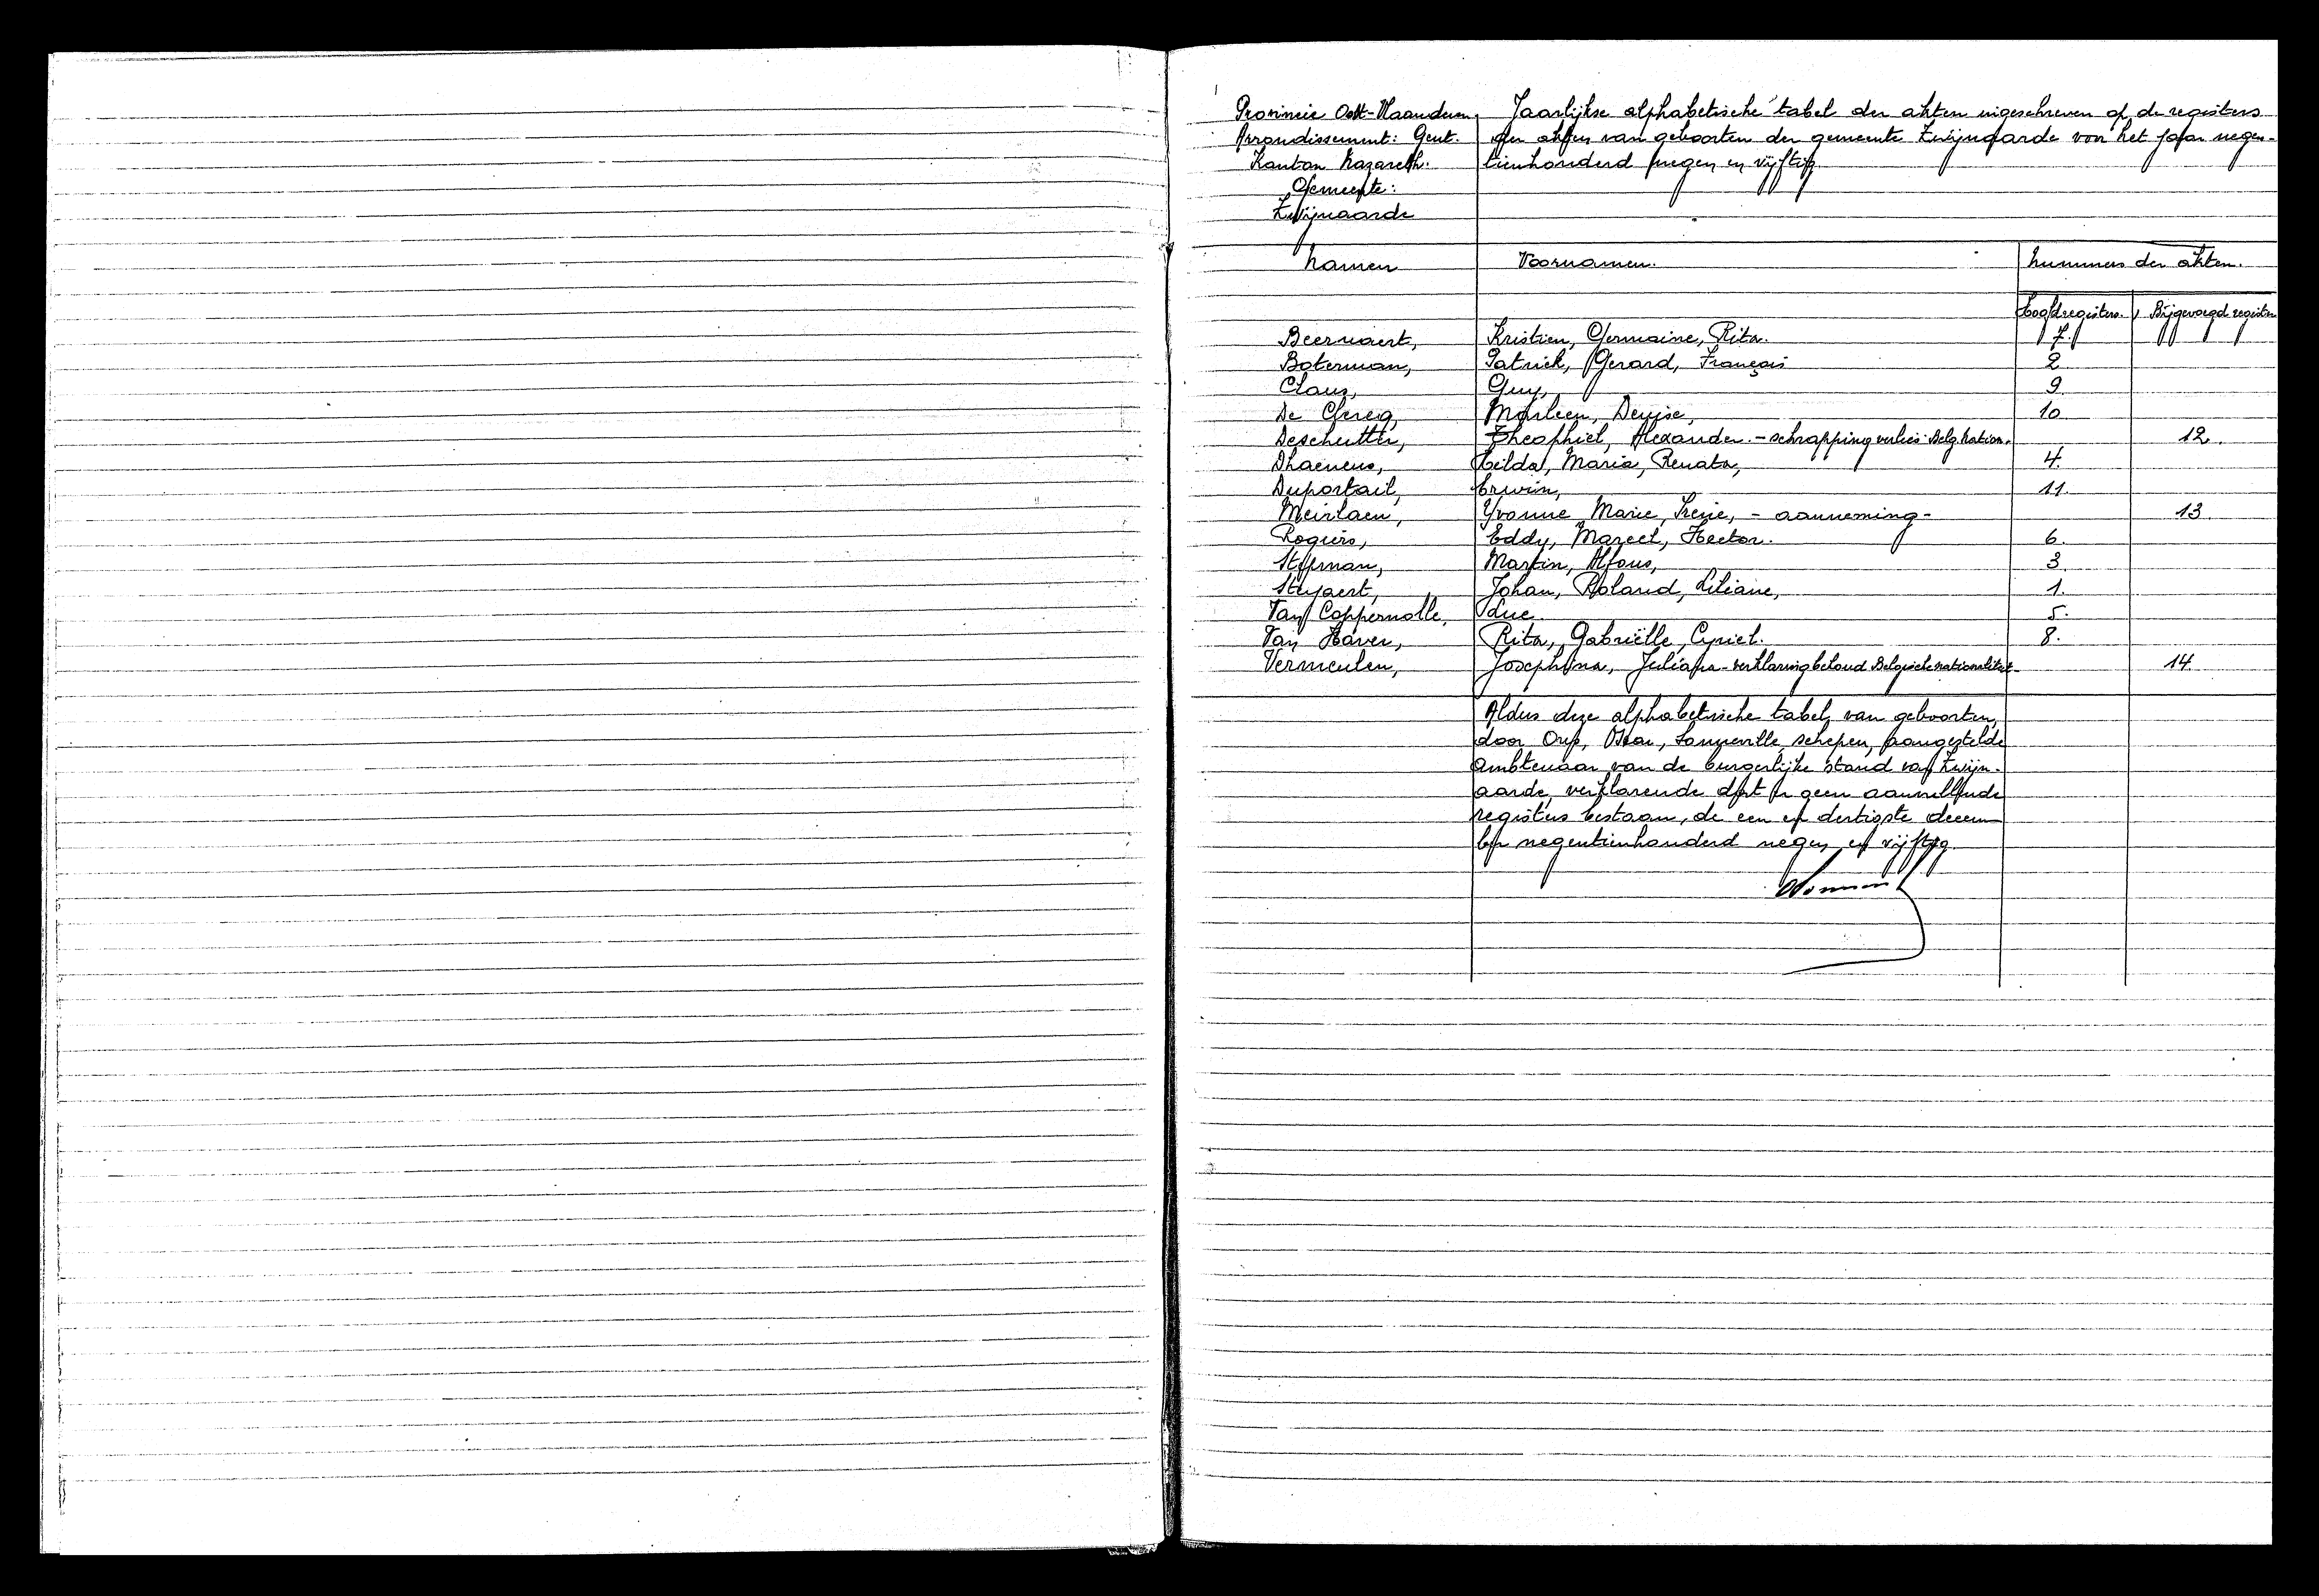 Provincie Oost-Vlaanderen
Arrondissement: Gent.
Kanton Nazareth:
Gemeente:
Zwijnaarde
Jaarlijkse alphabetische tabel der akten ingeschreven op de registers
der akten van geboorten der gemeente Zwijnaarde voor het jaar negen-
tienhonderd negen en vijftig
Namen Voornamen. Nummers der akten.
Hoofdregisters. Bijgevoegd register
Beernaert, Kristien, Germaine, Rita. 7.
Boterman, Patrick, Gerard, François 2
Claus, Guy, 9
De Clercq, Marleen, Denise, 10
Deschutter, Theophiel, Alexander. - schrapping verlies Belg. Nation. 12.
Dhaenens, Hilda, Maria, Renata, 4.
Duportail, Erwin, 11.
Meirlaen, Yvonne Marie, Irene, - aanneming - 13.
Rogiers, Eddy, Marcel, Hector. 6.
Martin, Alfons, 3.
Steyaert, Johan, Roland, Liliane, 1.
Van Coppernolle, Luc 5.
Van Haver, Rita, Gabriëlle, Cyriel. 8.
Vermeulen, Josephina, Juliana - verklaring behoud Belgische nationaliteit 14.
Aldus deze alphabetische tabel van geboorten,
door Ons, schepen, aangestelde
ambtenaar van de burgerlijke stand van Zwijn-
aarde, verklarende dat er geen aanvullende
registers bestaan, de een en dertigste decem
ber negentienhonderd negen en vijftig